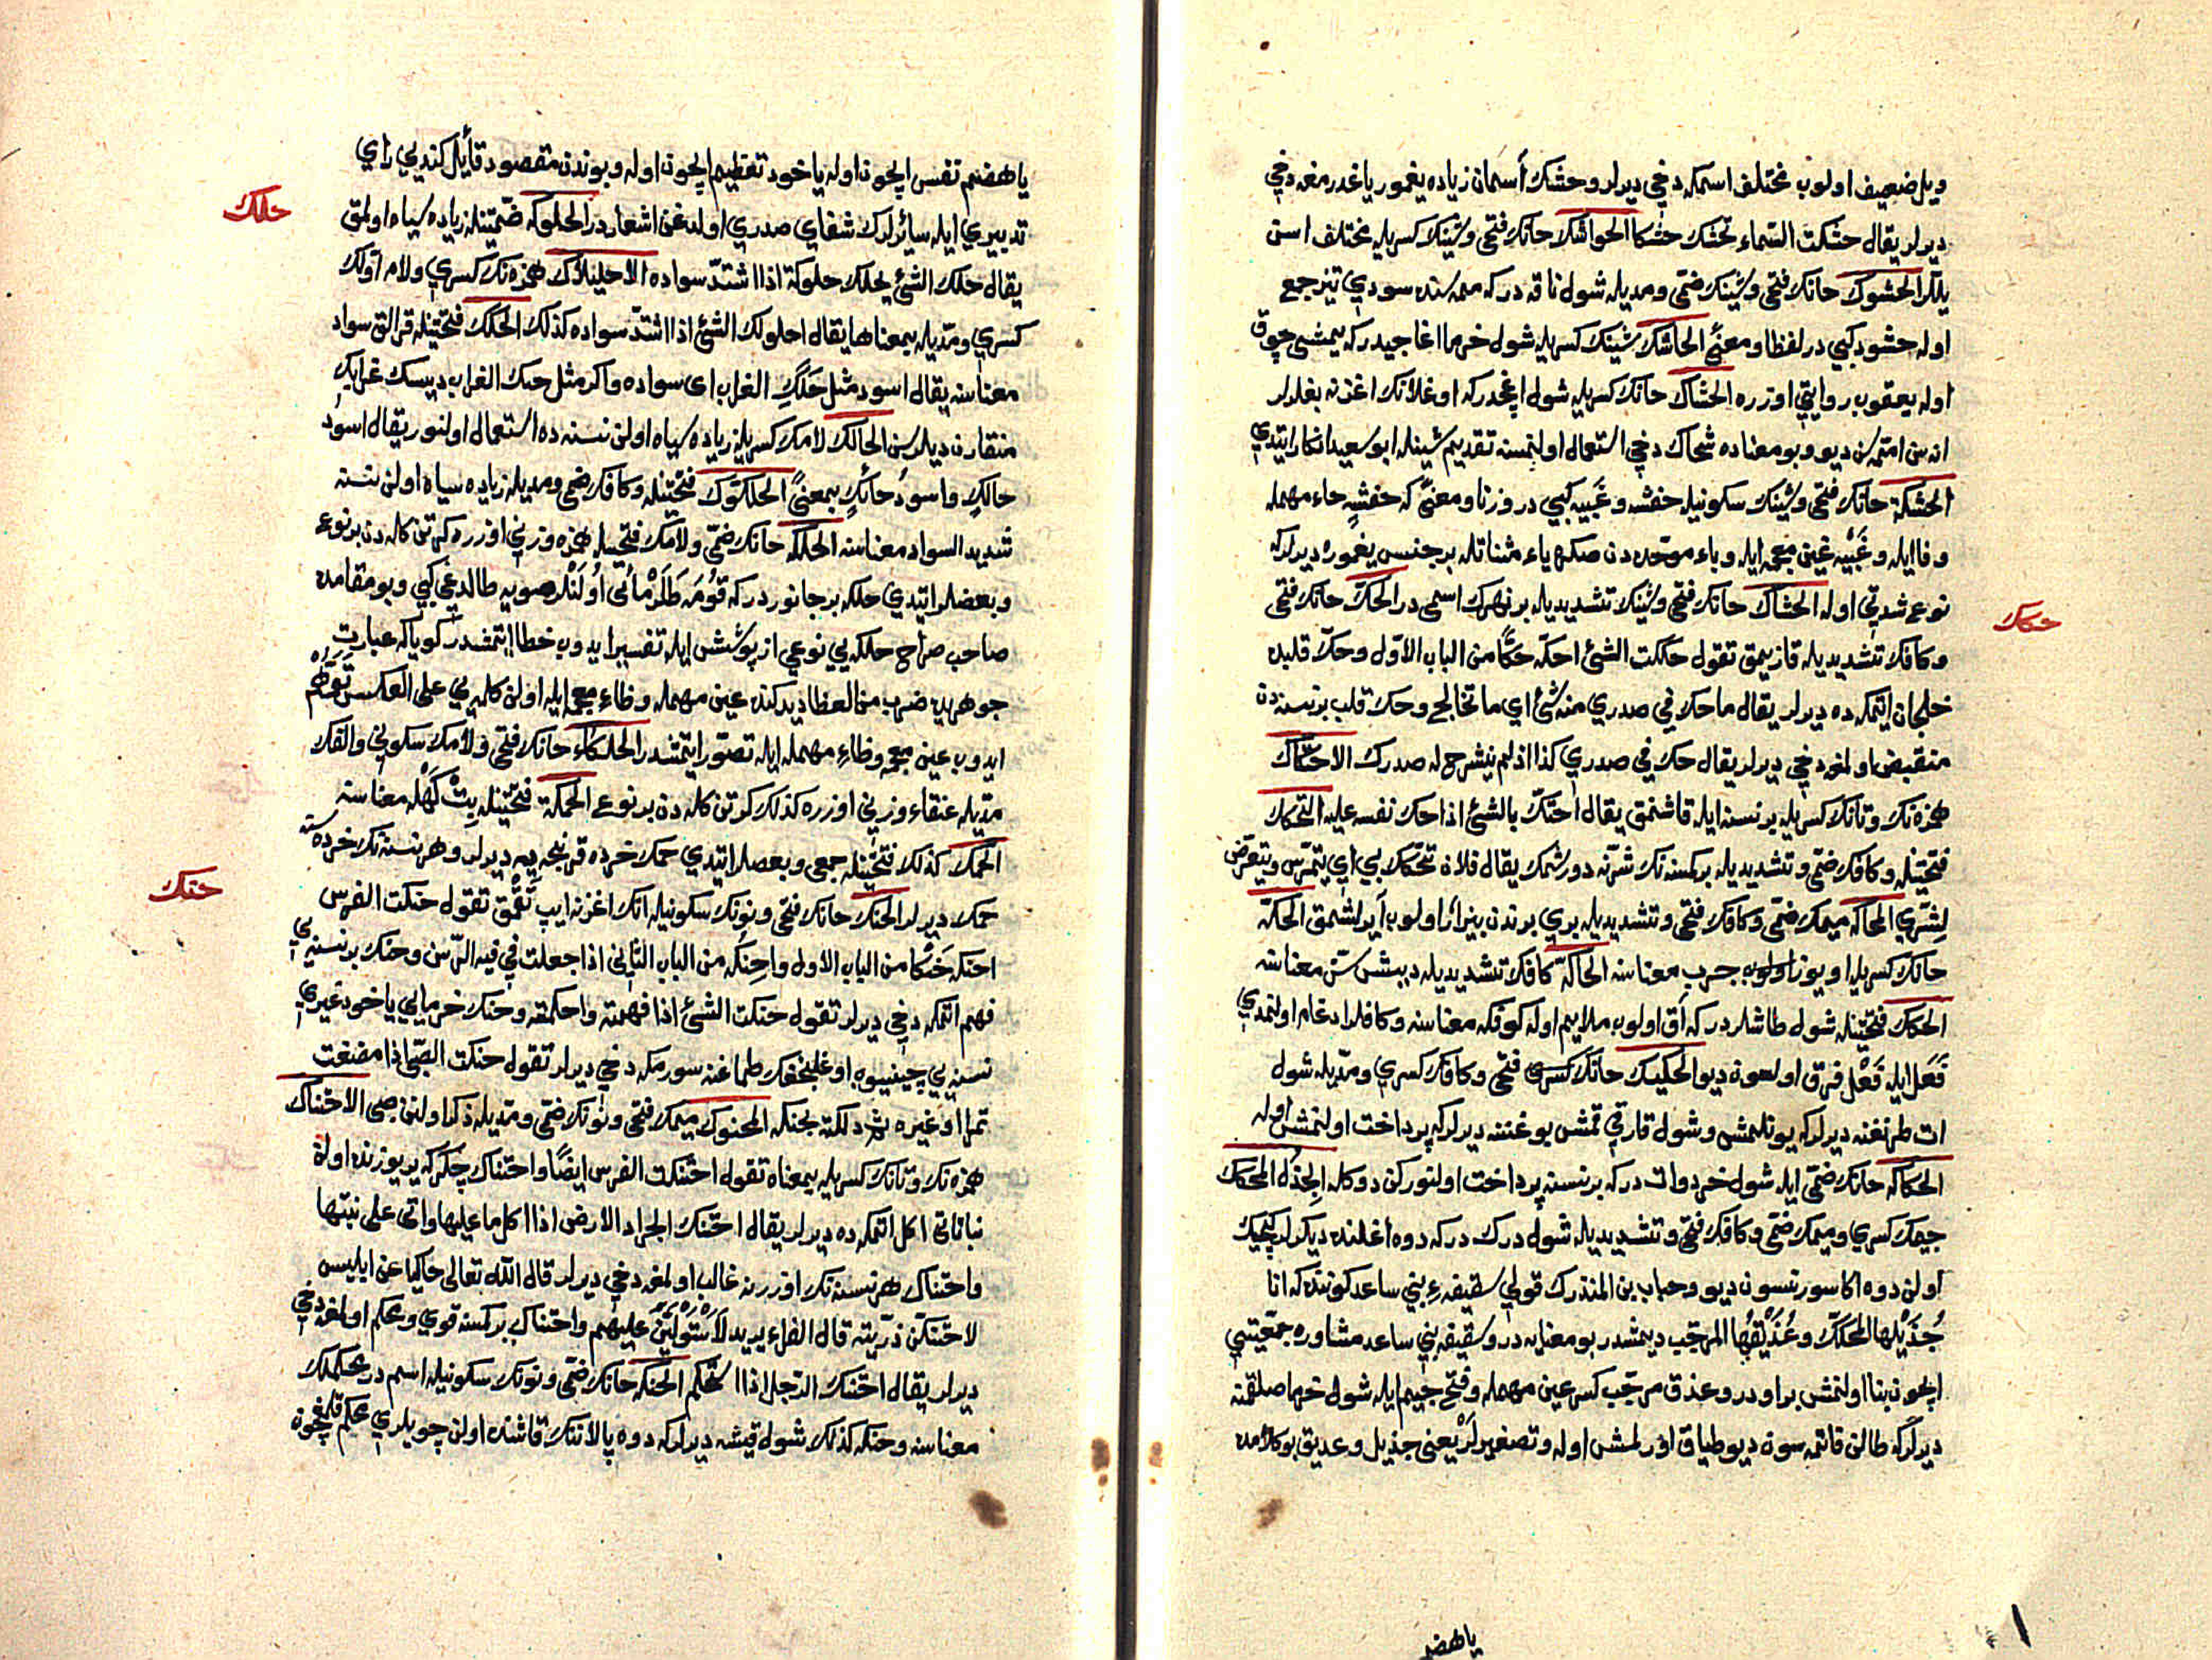 ويل ضعيف اولوب مختلف اسمكه دخي ديرلر وحشك أسمان زياده يغمور ياغدرمغه دخي
ديرلر يقال حشكت السماء تحشك حشكا الحواشك حانك فتحى وشينك كسريله مختلف اسن
يللر الحشوك حانك فتحى وشينك ضمى ومديله شول ناقه در كه ممه سنده سودي تيز جمع
اوله حشود كبي در لفظا ومعنًى الحاشك شينك كسريله شول خرما اغاجيدر كه يمشى چوق
اوله يعقوب روايتي اوزره الحشاك حانك كسريله شول اغچدر كه اوغلانك اغزنه بغلرلر
اناسن امتمه سن ديو وبو معناده شحاك دخي استعمال اولنمسنه تقديم شينله ابو سعيد انكار ايتدي
الحشكة حانك فتحى وشينك سكونيله حفشه وغبيه كبي در وزنا ومعنًى كه حفشه حاء مهمله
وفا ايله وغبيه غين معجمه ايله وباء موحده دن صكره ياء مثناتله بر جنس يغموره ديرلر كه
نوع شدتي اوله الحشاك حانك فتحى وشينك تشديديله بر نهرك اسمى در الحك حانك فتحى
وكافك تشديديله قازيمق تقول حككت الشئ احكه حكًّا من الباب الاول وحك قلبده
خلجان ايتمكه ده ديرلر يقال ما حك في صدري منه شئ اي ما تخالج وحك قلب بر نسنه دن
منقبض اولمغه دخي ديرلر يقال حك في صدري كذا اذ لم ينشرح له صدرك الاحتكاك
همزه نك وتانك كسريله بر نسنه ايله قاشنمق يقال احتك بالشئ اذا حك نفسه عليه التحكك
فتحتينله وكافك ضمى وتشديديله بر كمسنه نك شرنه دورشمك يقال فلان تحكك بي اي يتمرس ويتعرض
لشري المحاكه ميمك ضمى وكافك فتحى وتشديديله بري بوندن بيزار اولوب ايرلشمق الحكة
حانك كسريله اويوز اولوب جرب معناسنه الحاكة كافك تشديديله ديش سن معناسنه
الحكك فتحتينله شول طاشلردر كه اق اولوب ملايم اوله كوفكه معناسنه وكافلر ادغام اولنمدي
فَعَل ايله فَعْل فرق اولهوه ديو الحكيك حانك فتحى وكافك كسري ومديله شول
ات طرنغنه ديرلر كه يونلمش وشول قارقي قمش بوغننه ديرلر كه پرداخت اولنمش اوله
الحكاكه حانك ضمى ايله شول خردوات در كه بر نسنه پرداخت اولنوركن دوكله الجذل المحكك
جيمك كسري وميمك ضمى وكافك فتحى وتشديديله شول درك در كه دوه اغلنده ديكرلر كيجيك
اولن دوه اكا سورتنسون ديو وحباب بن المنذرك قولي سقيفهٔ بني ساعد كوننده كه انا
جُذَيْلها المحكّك وعُذَيْقُها المرجّب ديمشدر بو معنايه در وسقيفه بني ساعد مشاوره جمعيتي
ايچون بنا اولنمش بر اودر وعذق مرجب كسر عين مهمله وفتح جيم ايله شول خرما صلقمنه
ديرلر كه طالن قاتمه سون ديو طياق اورلمش اوله وتصغيرلر يعني جذيل وعذيق بو كلامده
يا هضم
حكك
يا هضم نفس ايچون اوله يا خود تعظيم ايچون اوله وبوندن مقصود قايل كندي راي
تدبيري ايله سائرلرك شفاي صدري اولدغن اشعاردر الحلوكه ضمتينله زياده سياه اولمق
يقال حلك الشئ يحلك حلوكة اذا اشتد سواده الاحليلاك همزه نك كسري ولام اولك
كسري ومديله بمعناها يقال احلولك الشئ اذا اشتد سواده كذلك الحلك فتحتينله قرالق سواد
معناسنه يقال اسود مثل حَلَكِ الغراب اى سواده واكر مثل حنك الغراب ديسك غرابك
منقارن ديلرسن الحالك لامك كسريله زياده سياه اولن نسنه ده استعمال اولنور يقال اسود
حالك واسود حانك بمعنًى الحلكوك فتحتينله وكافك ضمى ومديله زياده سياه اولن نسنه
شديد السواد معناسنه الحلكه حانك ضمى ولامك فتحيله همزه وزني اوزره كرتن كله دن بر نوع
وبعضلر ايتدي حلكه بر جانوردر كه قومه طلرماني اولنلر صويه طالدغي كبي وبو مقامده
صاحب صراح حلكه يي نوعي از پوشش ايله تفسير ايدوب خطا ايتمشدر كويا كه عبارت
جوهريده ضرب من العظا ديدكنده عين مهمله وظاء معجمه ايله اولن كلمه يي على العكس توهم
ايدوب عين معجمه وطاء مهمله ايله تصور ايتمشدر الحلكاء حانك فتحى ولامك سكوني والفك
مديله عنقاء وزني اوزره كذلك كرتن كله دن بر نوع الحمكة فتحتينله بت كهله معناسنه
الحمك كذلك فتحتينله جمعى وبعضلر ايتدي حمك خرده قرنجه يه ديرلر وهر نسنه نك خرده سنه
حمك ديرلر الحنك حانك فتحى ونونك سكونيله اتك اغزنه ايپ تقمق تقول حنكت الفرس
احنكه حَنْكًا من الباب الاول واحنكه من الباب الثاني اذا جعلت في فيه الرسن وحنك بر نسنه يي
فهم اتمكه دخي ديرلر تقول حنكت الشئ اذا فهمته واحكمته وحنك خرمايي يا خود غيري
نسنه يي چينيوب اوغلنجغك طماغنه سورمكه دخي ديرلر تقول حنكت الصبي اذا مضغت
تمرا او غيره ثم دلكته بحنكه المحنوك ميمك فتحى ونونك ضمى ومديله ذكر اولنن صبى الاحتناك
همزه نك وتانك كسريله بمعناه تقول احتنكت الفرس ايضًا واحتناك چكركه ير يوزنده اولان
نباتاتي اكل اتمكه ده ديرلر يقال احتنك الجراد الارض اذا اكل ما عليها واتى على نبتها
واحتناك هر نسنه نك اوزرينه غالب اولمغه دخي ديرلر قال الله تعالى حاكيا عن ابليس
لاحتنكن ذريته قال الفراء يريد لاستولين عليهم واحتناك بر كمسنه قوي ومحكم اولمغه دخي
ديرلر يقال احتنك الرجل اذا استحكم الحنكه حانك ضمى ونونك سكونيله اسم در محكملك
معناسنه وحنكه كذلك شول قيشه ديرلر كه دوه پالاننك قاشنده اولن چوبلري محكم قلمغچون
حلك
حنك